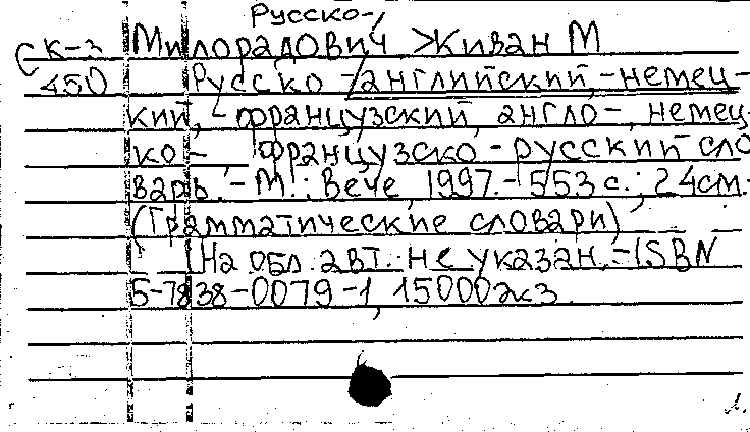 Русско-,
К-3 Милорадович Живан М
450 Русско-/английский,-немец-
кий,-французский, англо-, немец
ко-, французско-русский сло
варь.-М.: Вече, 1997.-553 с.; 24см.-
(Грамматические словари)
На обл. авт. не указан.-ISBN
5-7838-0079-1, 15000экз.